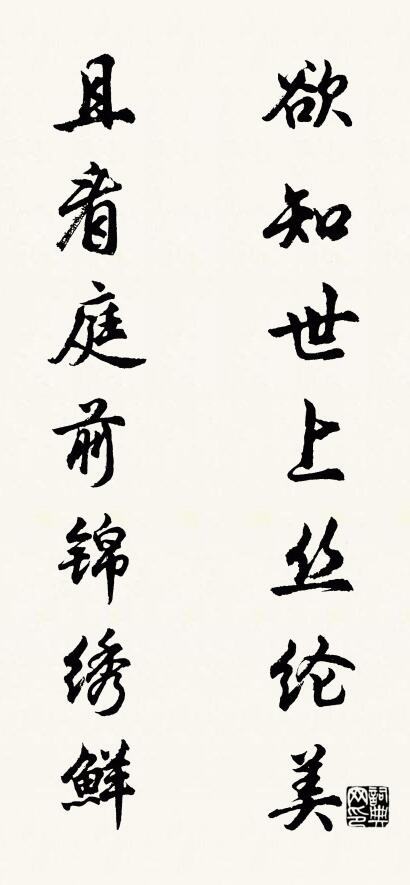 欲知世上丝纶美
且看庭前锦绣鲜
詞典
网印